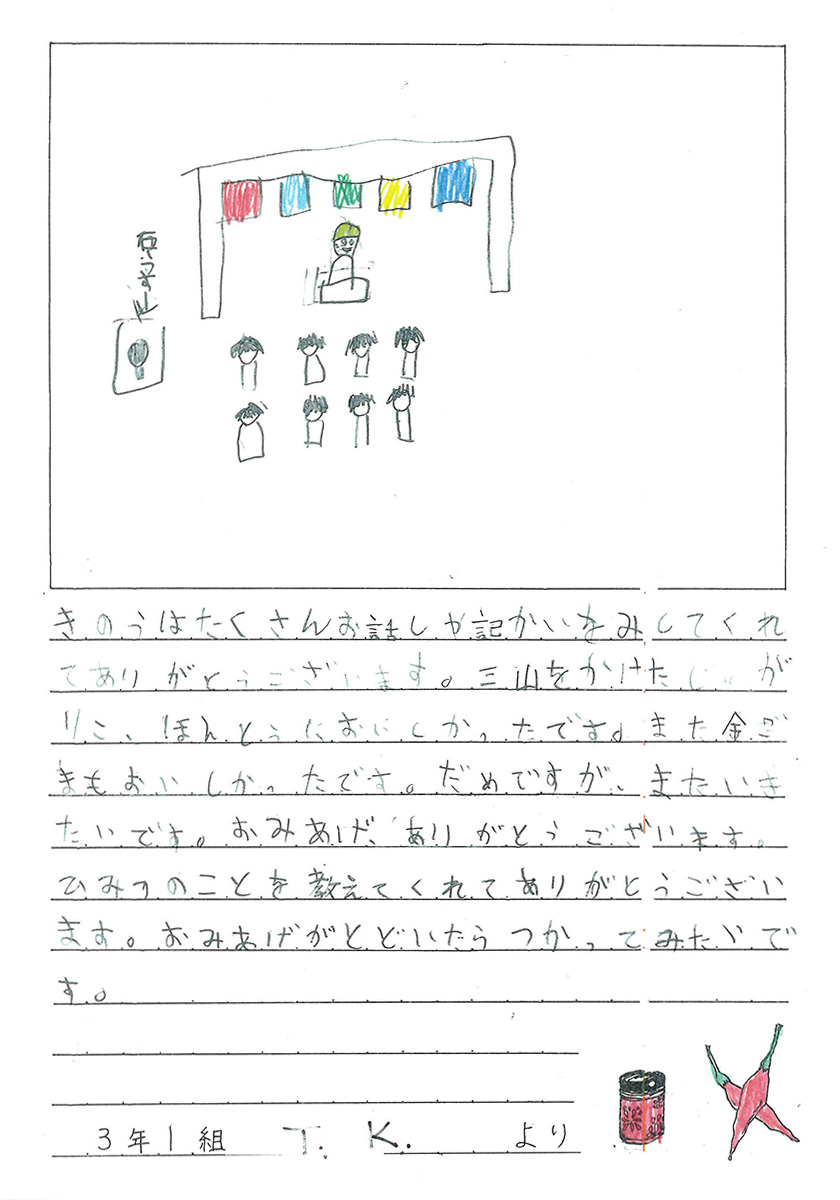 石うす
きのうはたくさんお話しや記かいをみしてくれ
てありがとうございます。三山をかけたじゃが
りこ、ほんとうにおいしかったです。また金ご
まもおいしかったです。だめですが、またいき
たいです。おみあげ、ありがとうございます。
ひみつのことを教えてくれてありがとうござい
ます。おみあげがとどいたらつかってみたいで
す。
3年1組 T. K. より